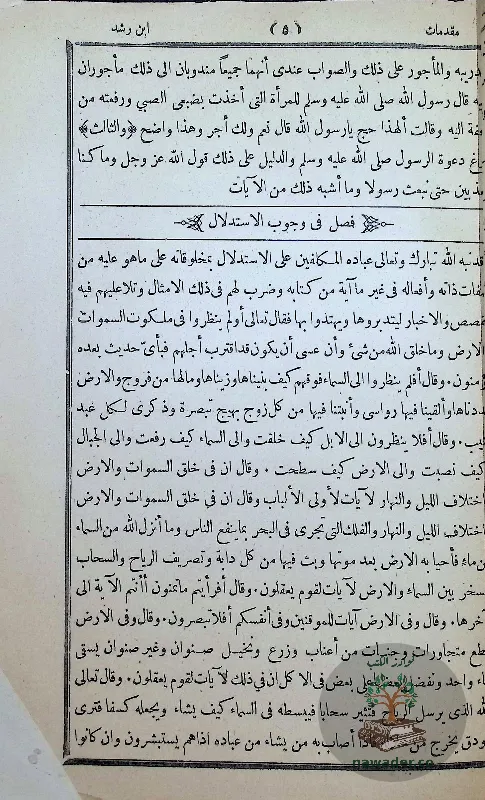 مقدمات (٥) ابن رشد
والمأجور على ذلك والصواب عندى أنهما جميعاً مندوبان الى ذلك مأجوران
قال رسول الله صلى الله عليه وسلم للمرأة التى أخذت بضبعى الصبي ورفعته من
اليه وقالت ألهذا حج يارسول الله قال نعم ولك أجر وهذا واضح ﴿والثالث﴾
دعوة الرسول صلى الله عليه وسلم والدليل على ذلك قول الله عز وجل وما كنا
حتى نبعث رسولا وما أشبه ذلك من الآيات
فصل فى وجوب الاستدلال
الله تبارك وتعالى عباده المكلفين على الاستدلال بمخلوقاته على ماهو عليه من
ذاته وأفعاله فى غير ما آية من كتابه وضرب لهم فى ذلك الامثال وتلا عليهم فيه
والاخبار ليتدبروها ويهتدوا بها فقال تعالى أولم ينظروا فى ملكوت السموات
الارض وما خلق الله من شئ وأن عسى أن يكون قد اقترب أجلهم فبأى حديث بعده
وقال أفلم ينظروا الى السماء فوقهم كيف بنيناها وزيناها ومالها من فروج والارض
وألقينا فيها رواسى وأنبتنا فيها من كل زوج بهيج تبصرة وذكرى لكل عبد
وقال أفلا ينظرون الى الابل كيف خلقت والى السماء كيف رفعت والى الجبال
كيف نصبت والى الارض كيف سطحت . وقال ان فى خلق السموات والارض
اختلاف الليل والنهار لآيات لأولى الألباب وقال ان فى خلق السموات والارض
اختلاف الليل والنهار والفلك التى تجرى فى البحر بما ينفع الناس وما أنزل الله من السماء
ماء فأحيا به الارض بعد موتها وبث فيها من كل دابة وتصريف الرياح والسحاب
بين السماء والارض لآيات لقوم يعقلون . وقال أفرأيتم ماتمنون أأنتم الآية الى
آخرها . وقال وفى الارض آيات للموقنين وفى أنفسكم أفلا تبصرون . وقال وفى الارض
متجاورات وجنات من أعناب وزرع ونخيل صنوان وغير صنوان يسقى
واحد ونفضل بعضها على بعض فى الاكل ان فى ذلك لآيات لقوم يعقلون . وقال تعالى
الذى يرسل الرياح فتثير سحابا فيبسطه فى السماء كيف يشاء ويجعله كسفا فترى
يخرج من أصاب به من يشاء من عباده اذاهم يستبشرون وان كانوا
نوادر الكتب
nawader.co